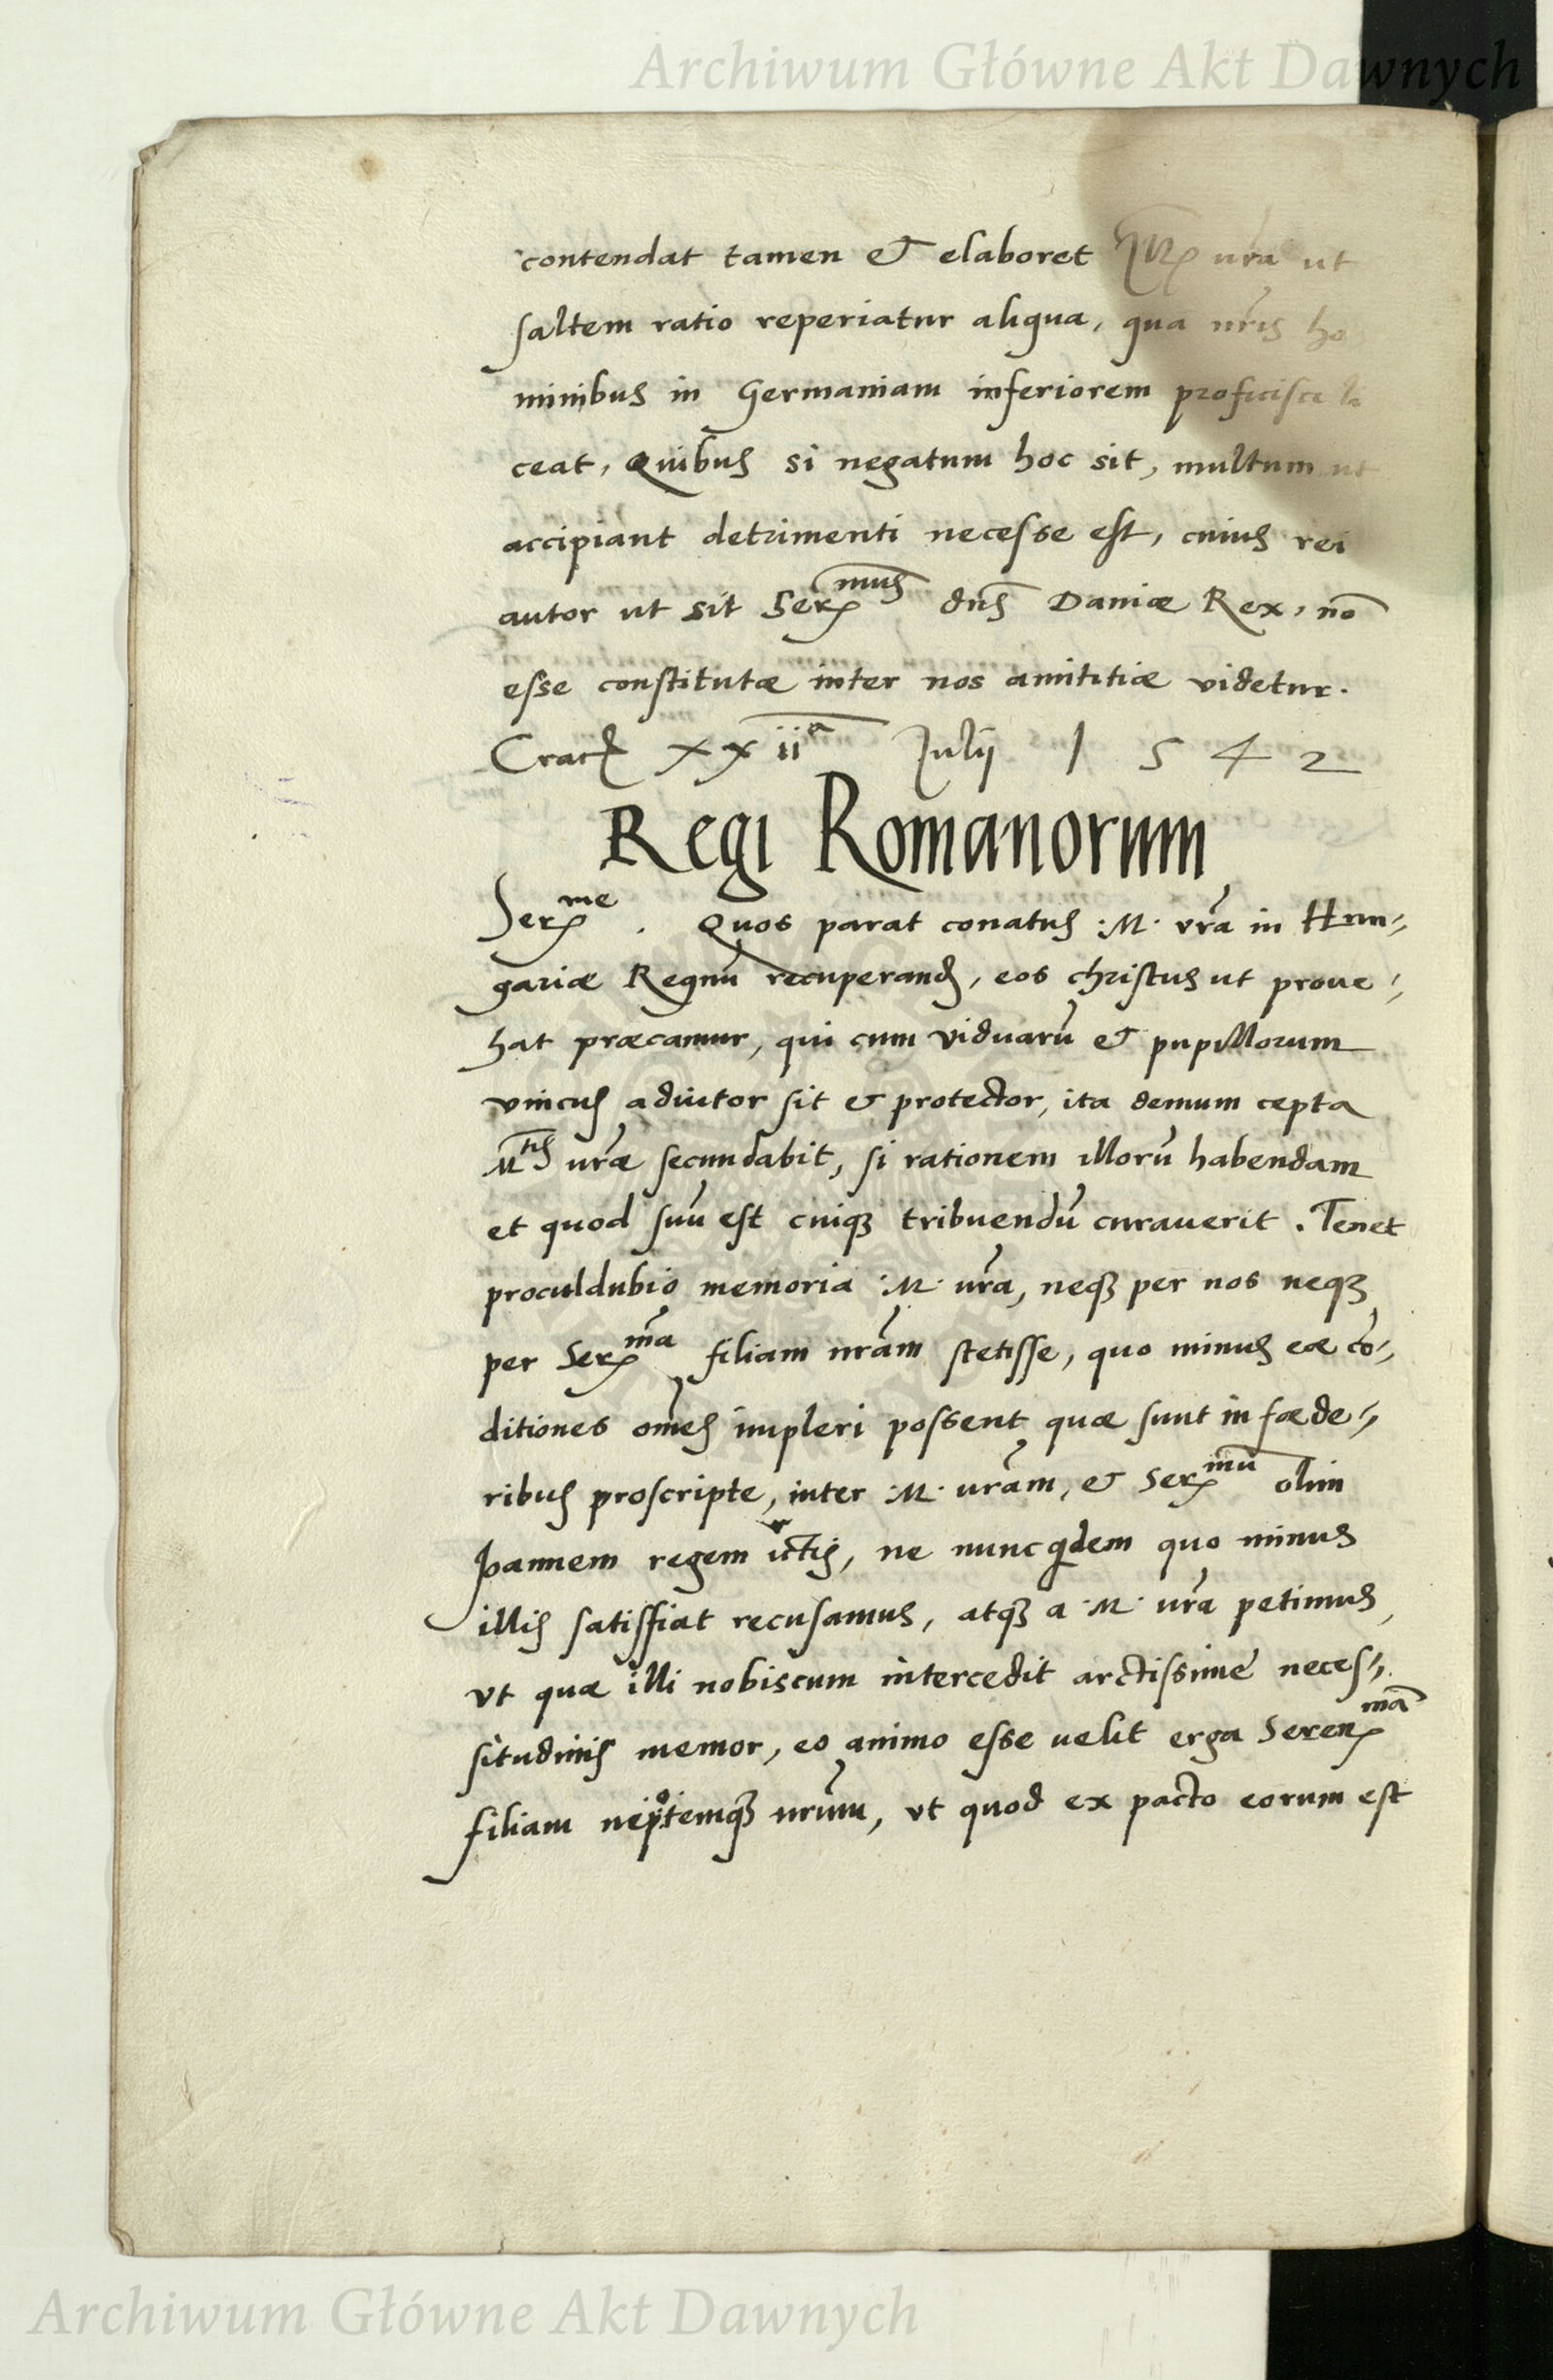 Archiwum Główne Akt Dawnych
contendat tamen & elaboret vra ut
saltem ratio reperiatur aliqua, qua nris ho
minibus in Germaniam inferiorem proficisci li
ceat, Quibus si negatum hoc sit, multum ut
accipiant detrimenti necesse est, cuius rei
autor ut sit Ser^mus dns Daniæ Rex, nō
esse constitutæ inter nos amititiæ videtur.
Crac XXii^a Julij 1542
Regi Romanorum
Ser^me. Quos parat conatus .M. vra in Hun-
gariæ Regnū recuperand, eos christus ut prove-
hat præcamur, qui cum viduarū & pupillorum
vnicus adiutor sit & protector, ita demum cepta
M^tis vræ secundabit, si rationem illorū habendam
et quod suū est cuiq3 tribuendū curaverit. Tenet
proculdubio memoria .M. vra, neq3 per nos neq3
per Ser^mā filiam nram stetisse, quo minus eæ cō-
ditiones omes impleri possent quæ sunt in fœde-
ribus proscripte, inter .M. vram, & Ser^mū olim
Joannem regem ictis, ne nunc qdem quo minus
illis satisfiat recusamus, atq3 a .M. vra petimus,
vt quæ illi nobiscum intercedit arctissime neces-
situdinis memor, eo animo esse velit erga Seren^mā
filiam nepotemq3 nrum, vt quod ex pacto eorum est
Archiwum Główne Akt Dawnych